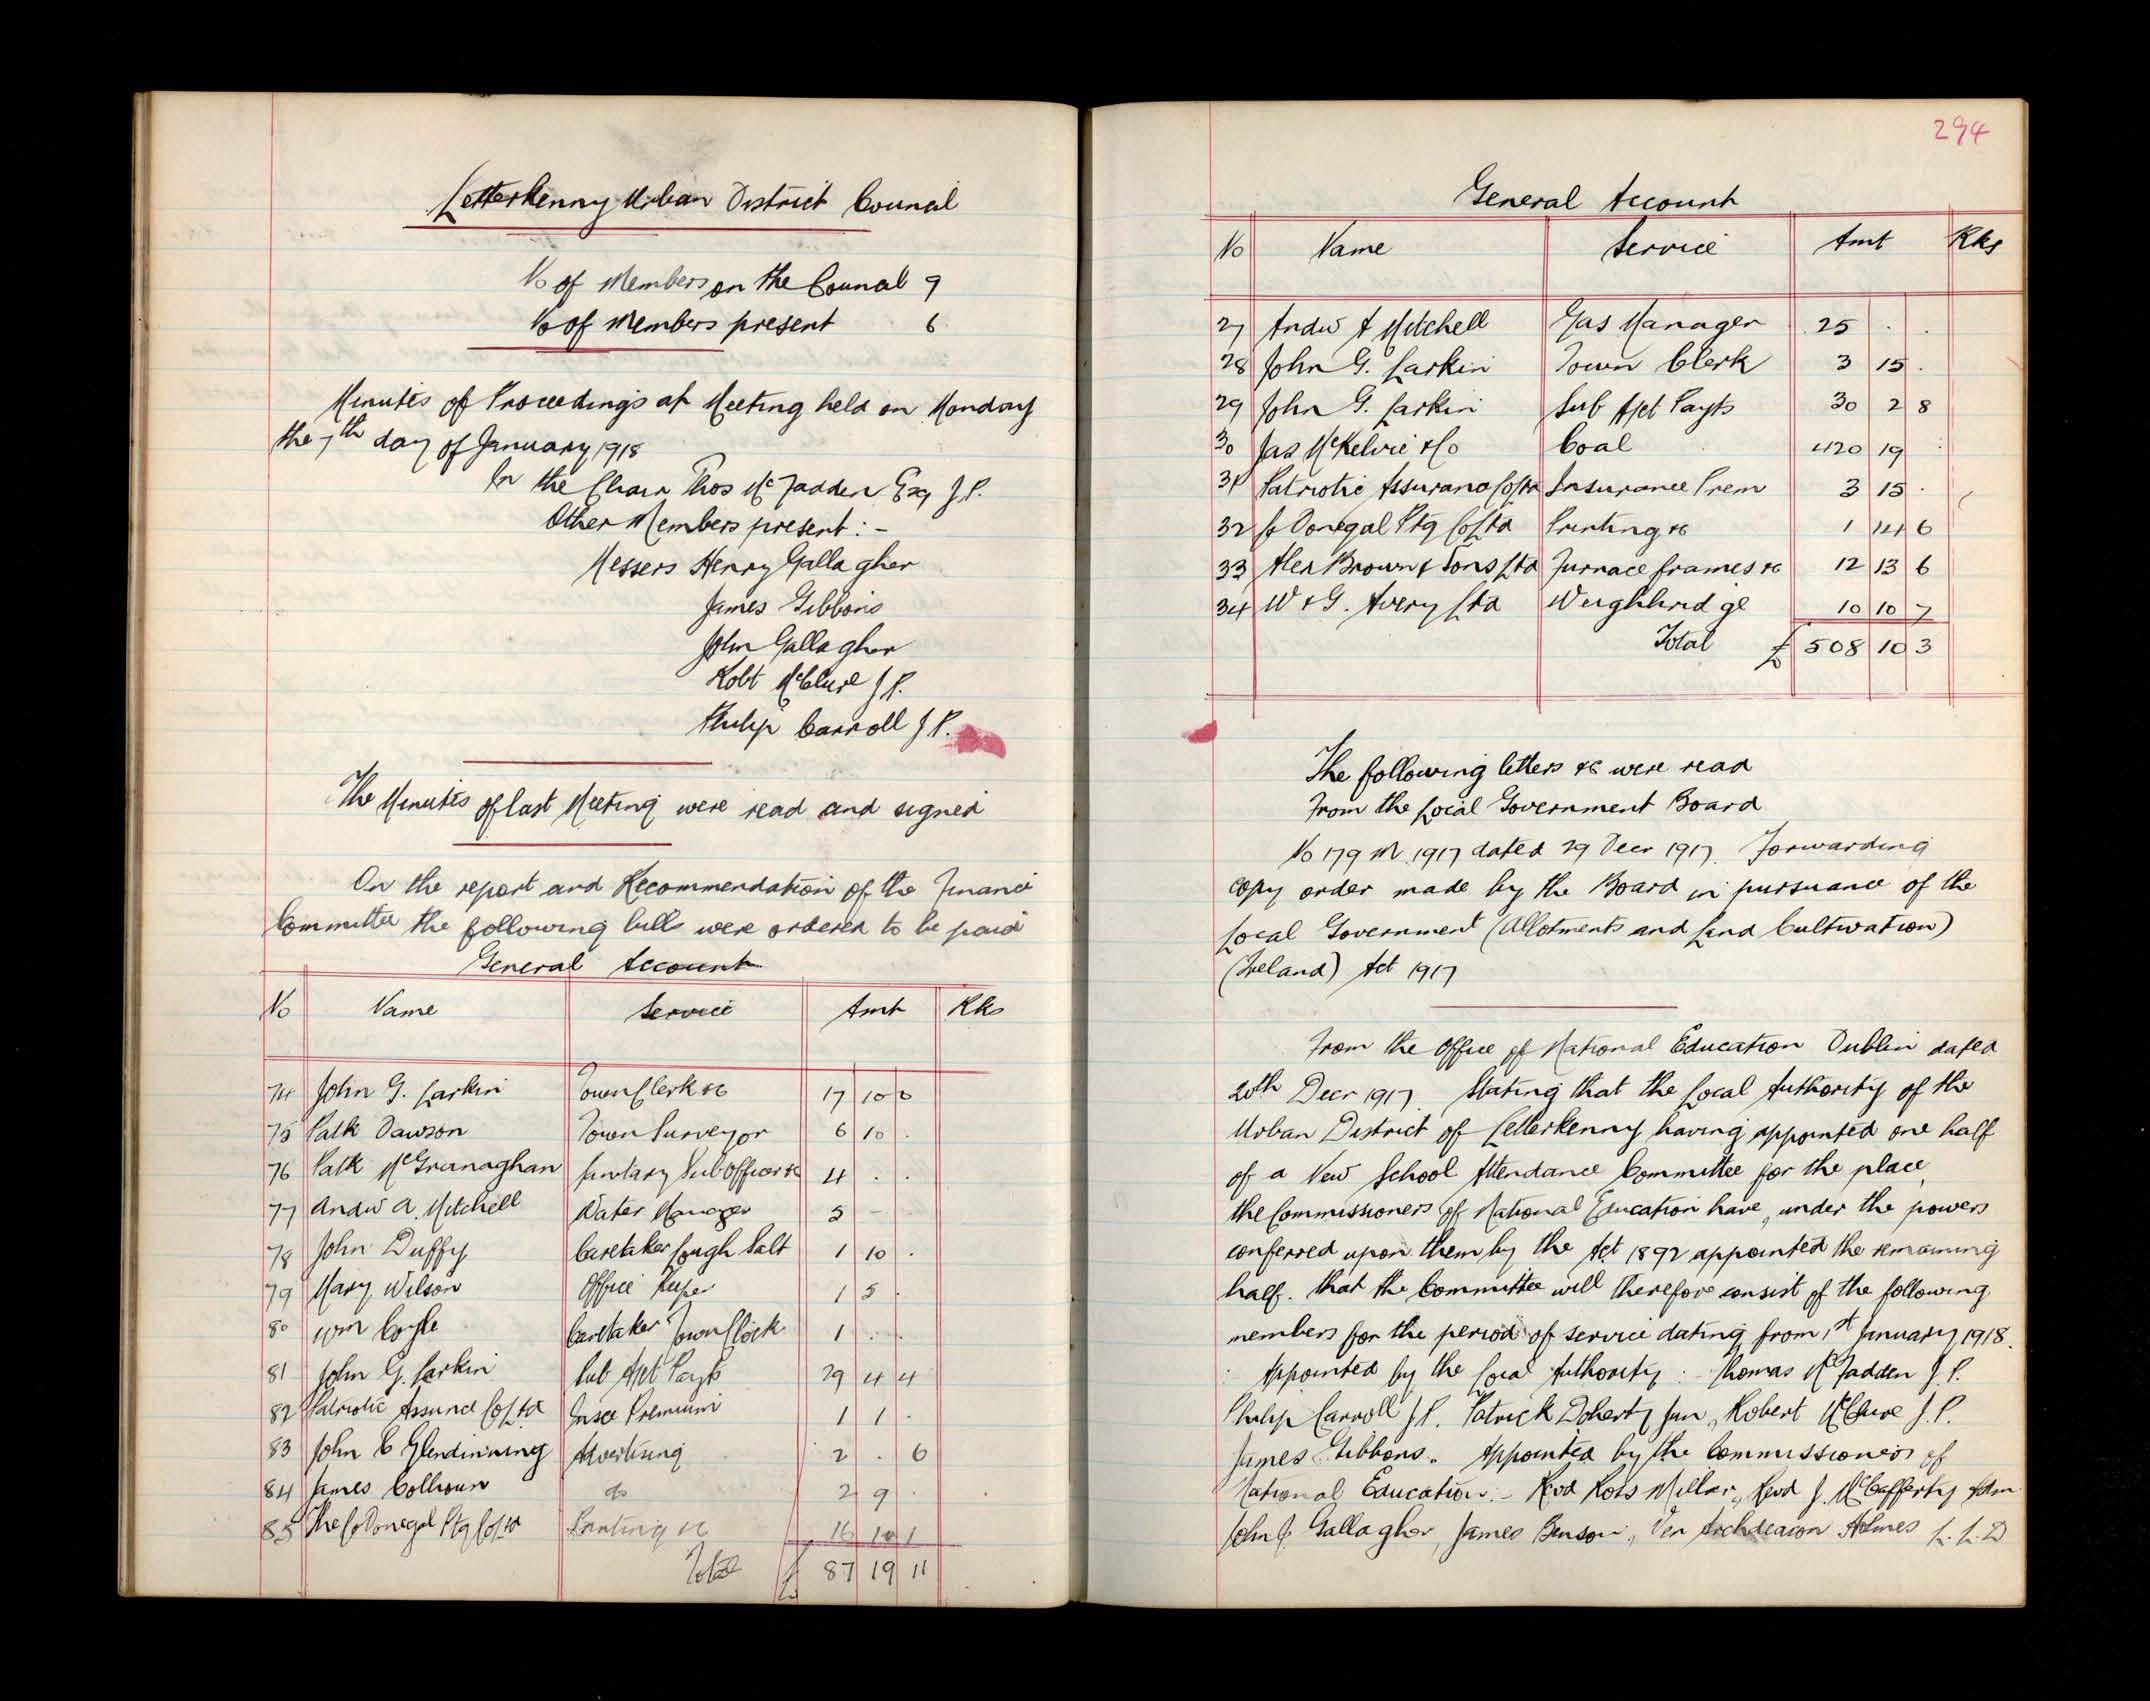 Letterkenny Urban District Council
No of Members on the Council 9
No of Members present 6
Minutes of Proceedings at Meeting held on Monday
the 7th day of January 1918
In the Chair Thos McFadden Esq J.P.
Other Members present: -
Messers Henry Gallagher
James Gibbons
John Gallagher
Robt McClure J P.
Philip Carroll J P.
The Minutes of last Meeting were read and signed
On the report and Recommendation of the Finance
Committee the following bills were ordered to be paid
General Account
No Name Service Amt Rks
74 John G. Larkin Town Clerk &c 17 10 0
75 Patk Dawson Town Surveyor 6 10 .
76 Patk McGranaghan Sanitary Sub Officer &c 4 . .
77 Andw A. Mitchell Water Manager 5 - -
78 John Duffy Caretaker Lough Salt 1 10 .
79 Mary Wilson Office Keeper 1 5 .
80 Wm Coyle Caretaker Town Clock 1 . .
81 John G. Larkin Sub Act Payts 29 4 4
82 Patriotic Assurnce Co Ltd Insce Premium 1 1 .
83 John C Glendinning Advertising 2 . 6
84 James Colhoun do 2 9 .
85 The Co Donegal Ptg Co Ltd Printing &c 16 10 1
Total £ 87 19 11
294
General Account
No Name Service Amt Rks
27 Andw A Mitchell Gas Manager 25 . .
28 John G. Larkin Town Clerk 3 15 .
29 John G. Larkin Sub Act Payts 30 2 8
30 Jas McKelvie & Co Coal 420 19
31 Patriotic Assurance Co Ltd Insurance Prem 3 15 .
32 Co Donegal Ptg Co Ltd Printing &c 1 14 6
33 Alex Brown & Sons Ltd Furnace frames &c 12 13 6
34 W & G. Avery Ltd Weighbridge 10 10 7
Total £ 508 10 3
The following letters &c were read
From the Local Government Board
No 179 M. 1917 dated 29 Decr 1917. Forwarding
copy order made by the Board in pursuance of the
Local Government (Allotments and Land Cultivation)
(Ireland) Act 1917
From the Office of National Education Dublin dated
20th Decr 1917. Stating that the Local Authority of the
Urban District of Letterkenny having appointed one half
of a New School Attendance Committee for the place,
the Commissioners of National Education have, under the powers
conferred upon them by the Act 1892 appointed the remaining
half. that the Committee will therefore consist of the following
members for the period of service dating from 1st January 1918.
Appointed by the Local Authority: - Thomas McFadden J.P.
Philip Carroll J.P. Patrick Doherty Jun, Robert McClure J.P.
James Gibbons. Appointed by the Commissioners of
National Education: - Revd Ross Millar, Revd J. McCafferty Adm
John J. Gallagher, James Benson, Ven Archdeacon Holmes L.L.D